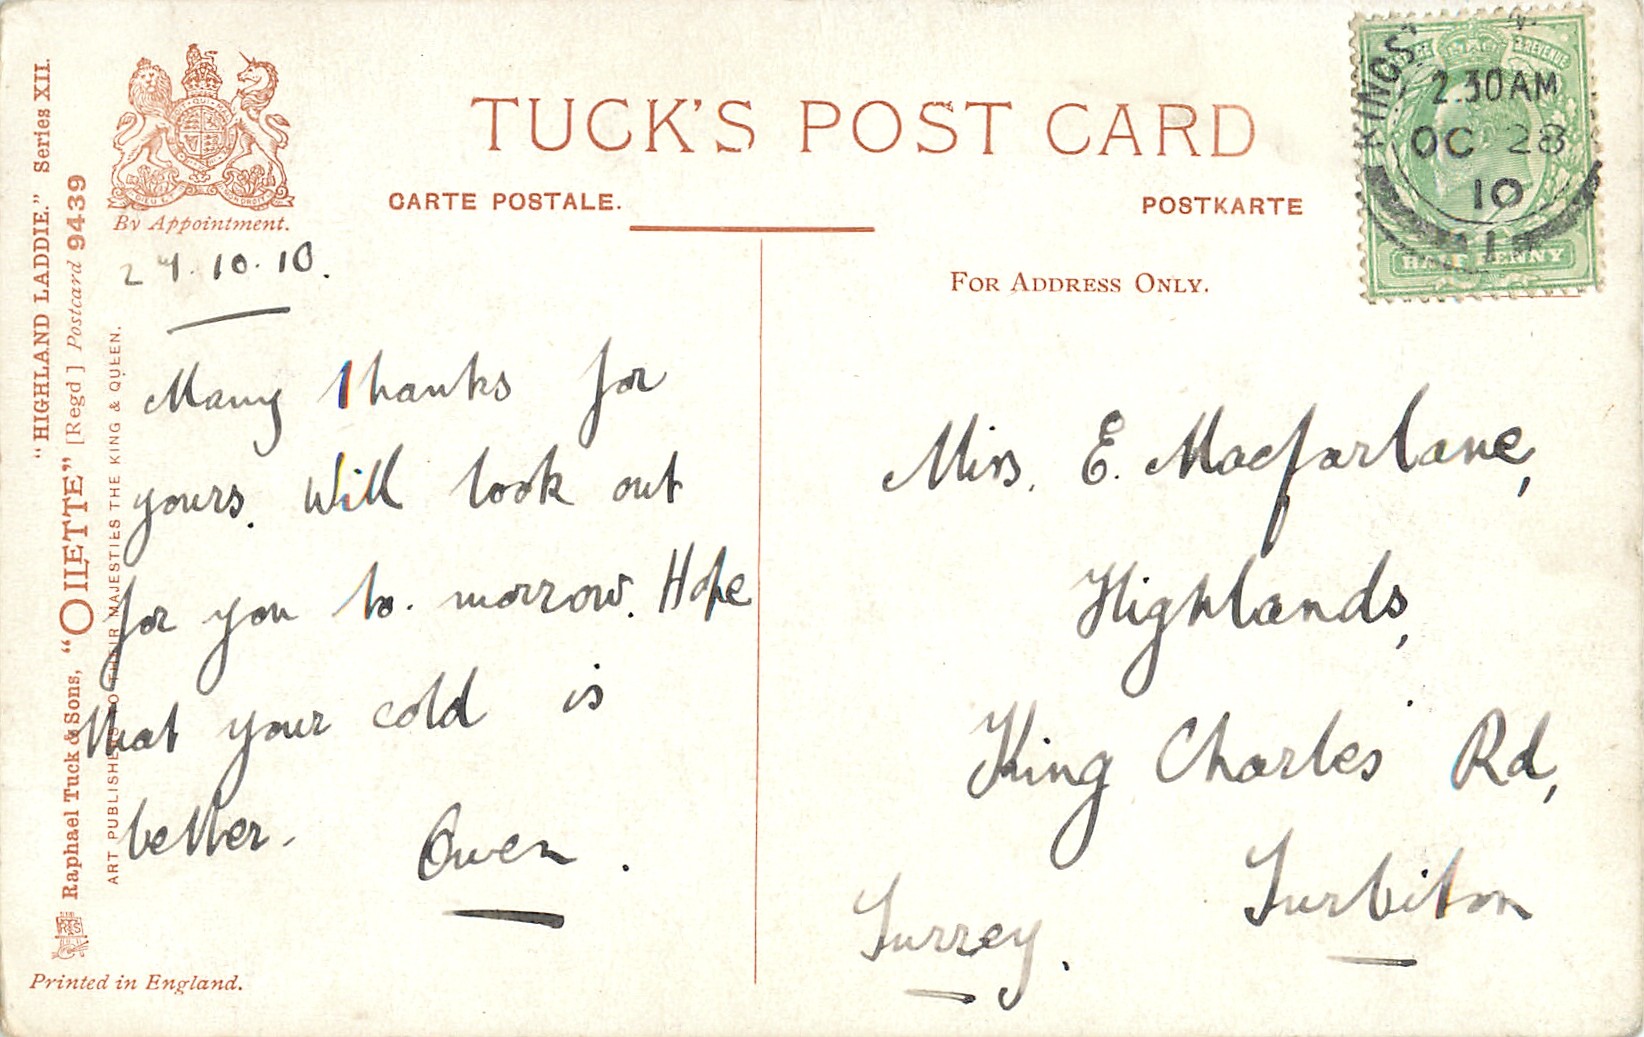 TUCK'S POST CARD
CARTE POSTALE.
POSTKARTE
FOR ADDRESS ONLY.
By Appointment.
"HIGHLAND LADDIE." Series XII.
Raphael Tuck & Sons, "OILETTE" [Regd] Postcard 9439
ART PUBLISHERS TO THEIR MAJESTIES THE KING & QUEEN.
Printed in England.
27.10.10.
Many thanks for
yours. Will look out
for you to. morrow. Hope
that your cold is
better. Owen.
Miss. E. Macfarlane,
Highlands,
King Charles' Rd,
Surbiton
Surrey.
KINGS
2.30 AM
OC 28
10
REVENUE
HALFPENNY